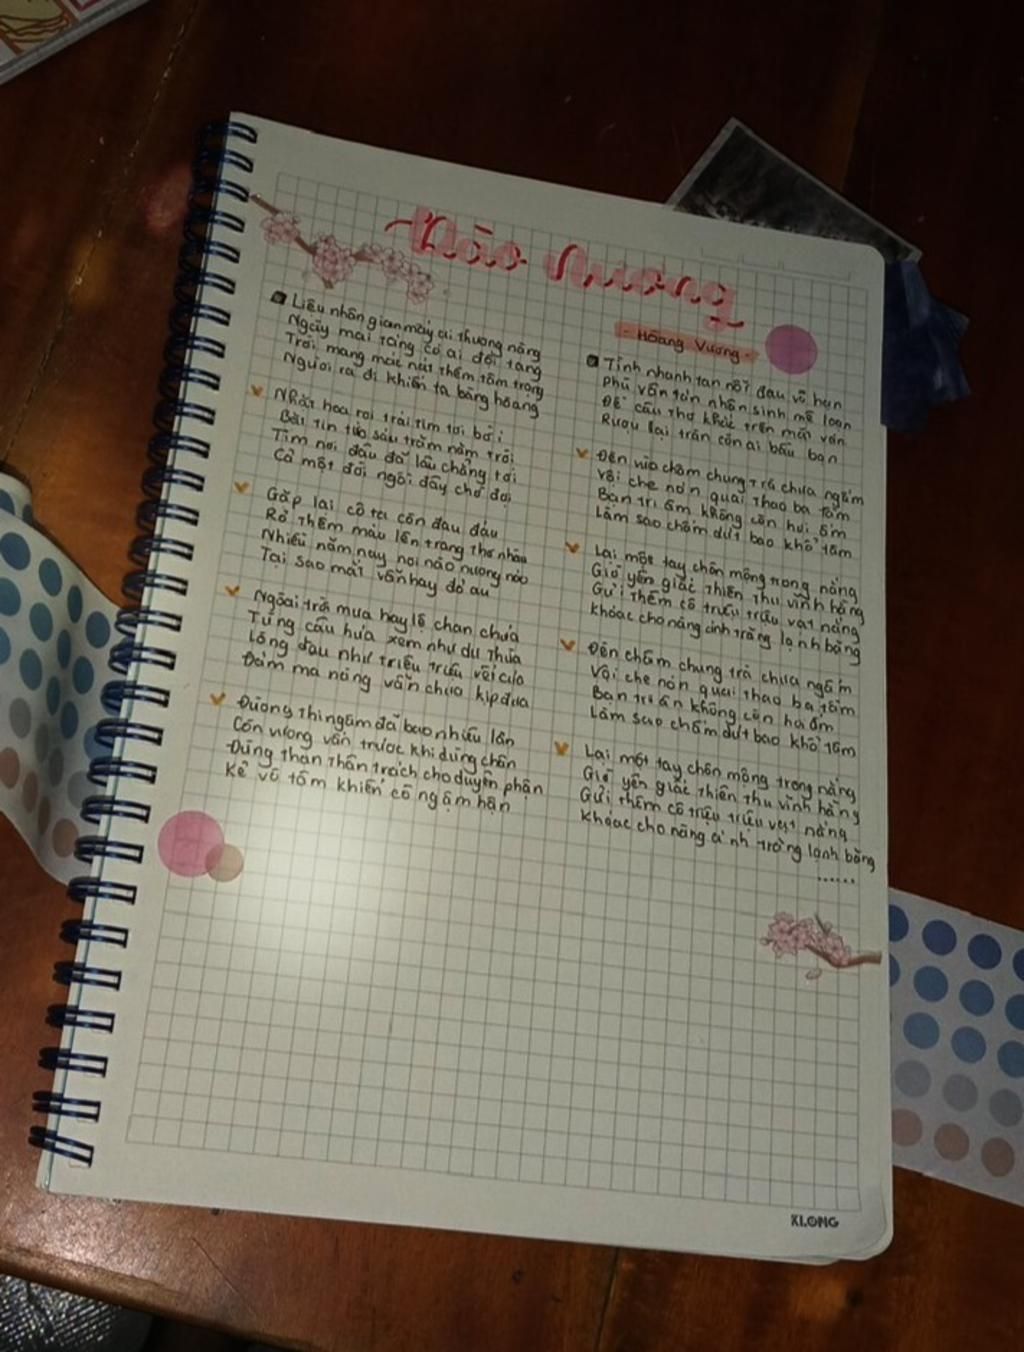 Đào Nương
- Hoàng Vương -
Liệu nhân gian mấy ai thương nàng
Ngày mai rằng có ai đổi tang
Trời mang mác nét thêm tâm trạng
Người ra đi khiến ta bàng hoàng
Nhặt hoa rơi trái tim tơi bời
Bãi tin sâu trăm năm trôi
Tìm nơi đâu đã lâu chẳng tới
Cả một đời ngồi đấy chờ đợi
Gặp lại cô ta còn đau đáu
Rồ thêm màu lên trang thơ nhàu
Nhiều năm nay nơi nào nương náo
Tại sao mắt vẫn hay đỏ au
Ngoài trời mưa hay lệ chan chứa
Từng câu hứa xem như dư thừa
Lòng đau như triệu triệu vết cứa
Đám ma nàng vẫn chưa kịp đưa
Đường thi ngâm đã bao nhiêu lần
Còn vương vấn trước khi dừng chân
Đừng than thân trách cho duyên phận
Kẻ vô tâm khiến cô ngậm hận
Tỉnh nhanh tan nỗi đau vô hạn
Phù vân tán nhân sinh mê loạn
Để câu thơ khóc trên mắt ván
Rượu lai trần còn ai bầu bạn
Đến vào chầm chung trà chưa ngấm
Vội che nón quai thao ba tầm
Bạn tri âm không còn hơi ấm
Làm sao chấm dứt bao khổ tâm
Lại một tay chôn mộng trong nàng
Giờ yên giấc thiên thu vĩnh hằng
Gửi thêm cô triệu triệu vạt nắng
Khoác cho nàng ánh trăng lạnh băng
Đến chầm chung trà chưa ngấm
Vội che nón quai thao ba tầm
Bạn tri ân không còn hơi ấm
Làm sao chấm dứt bao khổ tâm
Lại một tay chôn mộng trong nàng
Giờ yên giấc thiên thu vĩnh hằng
Gửi thêm cô triệu triệu vạt nắng
Khoác cho nàng ánh trăng lạnh băng
......
KLONG